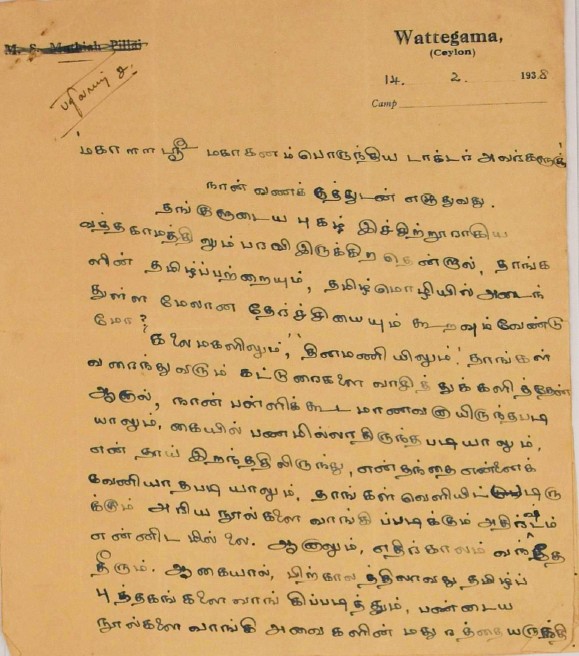 M. S. Muthiah Pillai
Wattegama,
(Ceylon)
14. 2. 1938
Camp
மகா ௱௱ ஸ்ரீ மகாகனம்பொருந்திய டாக்டர் அவர்களுக்கு
நான் வணக்கத்துடன் எழுதுவது.
தங்களுடைய புகழ் இச்சிற்றூராகிய
வத்தகாமத்திலும் பரவி இருக்கிற தென்றால், தாங்க
ளின் தமிழ்ப்பற்றையும், தமிழ்மொழியில் அடைந்
துள்ள மேலான தேர்ச்சியையும் கூறவும்வேண்டு
மோ?
"கலைமகளிலும்," "தினமணியிலும்" தாங்கள்
வரைந்துவரும் கட்டுரைகளை வாசித்துக்களித்தேன்
ஆனால், நான் பள்ளிக்கூட மாணவனாயிருந்தபடி
யாலும், கையில் பணமில்லாதிருந்த படியாலும்,
என் தாய் இறந்ததிலிருந்து, என்தந்தை என்னைக்
வேணியாதபடி யாலும், தாங்கள் வெளியிட்டிரு
க்கும் அரிய நூல்களை வாங்கிப்படிக்கும் அதிர்ஷ்டம்
என்னிடமில்லை. ஆனாலும், எதிர்காலம் வந்தே
தீரும். ஆகையால், பிற்காலத்திலாவது தமிழ்ப்
புத்தகங்களை வாங்கிப்படித்தும், பண்டைய
நூல்களை வாங்கி அவைகளின் மதுரத்தையருந்தி